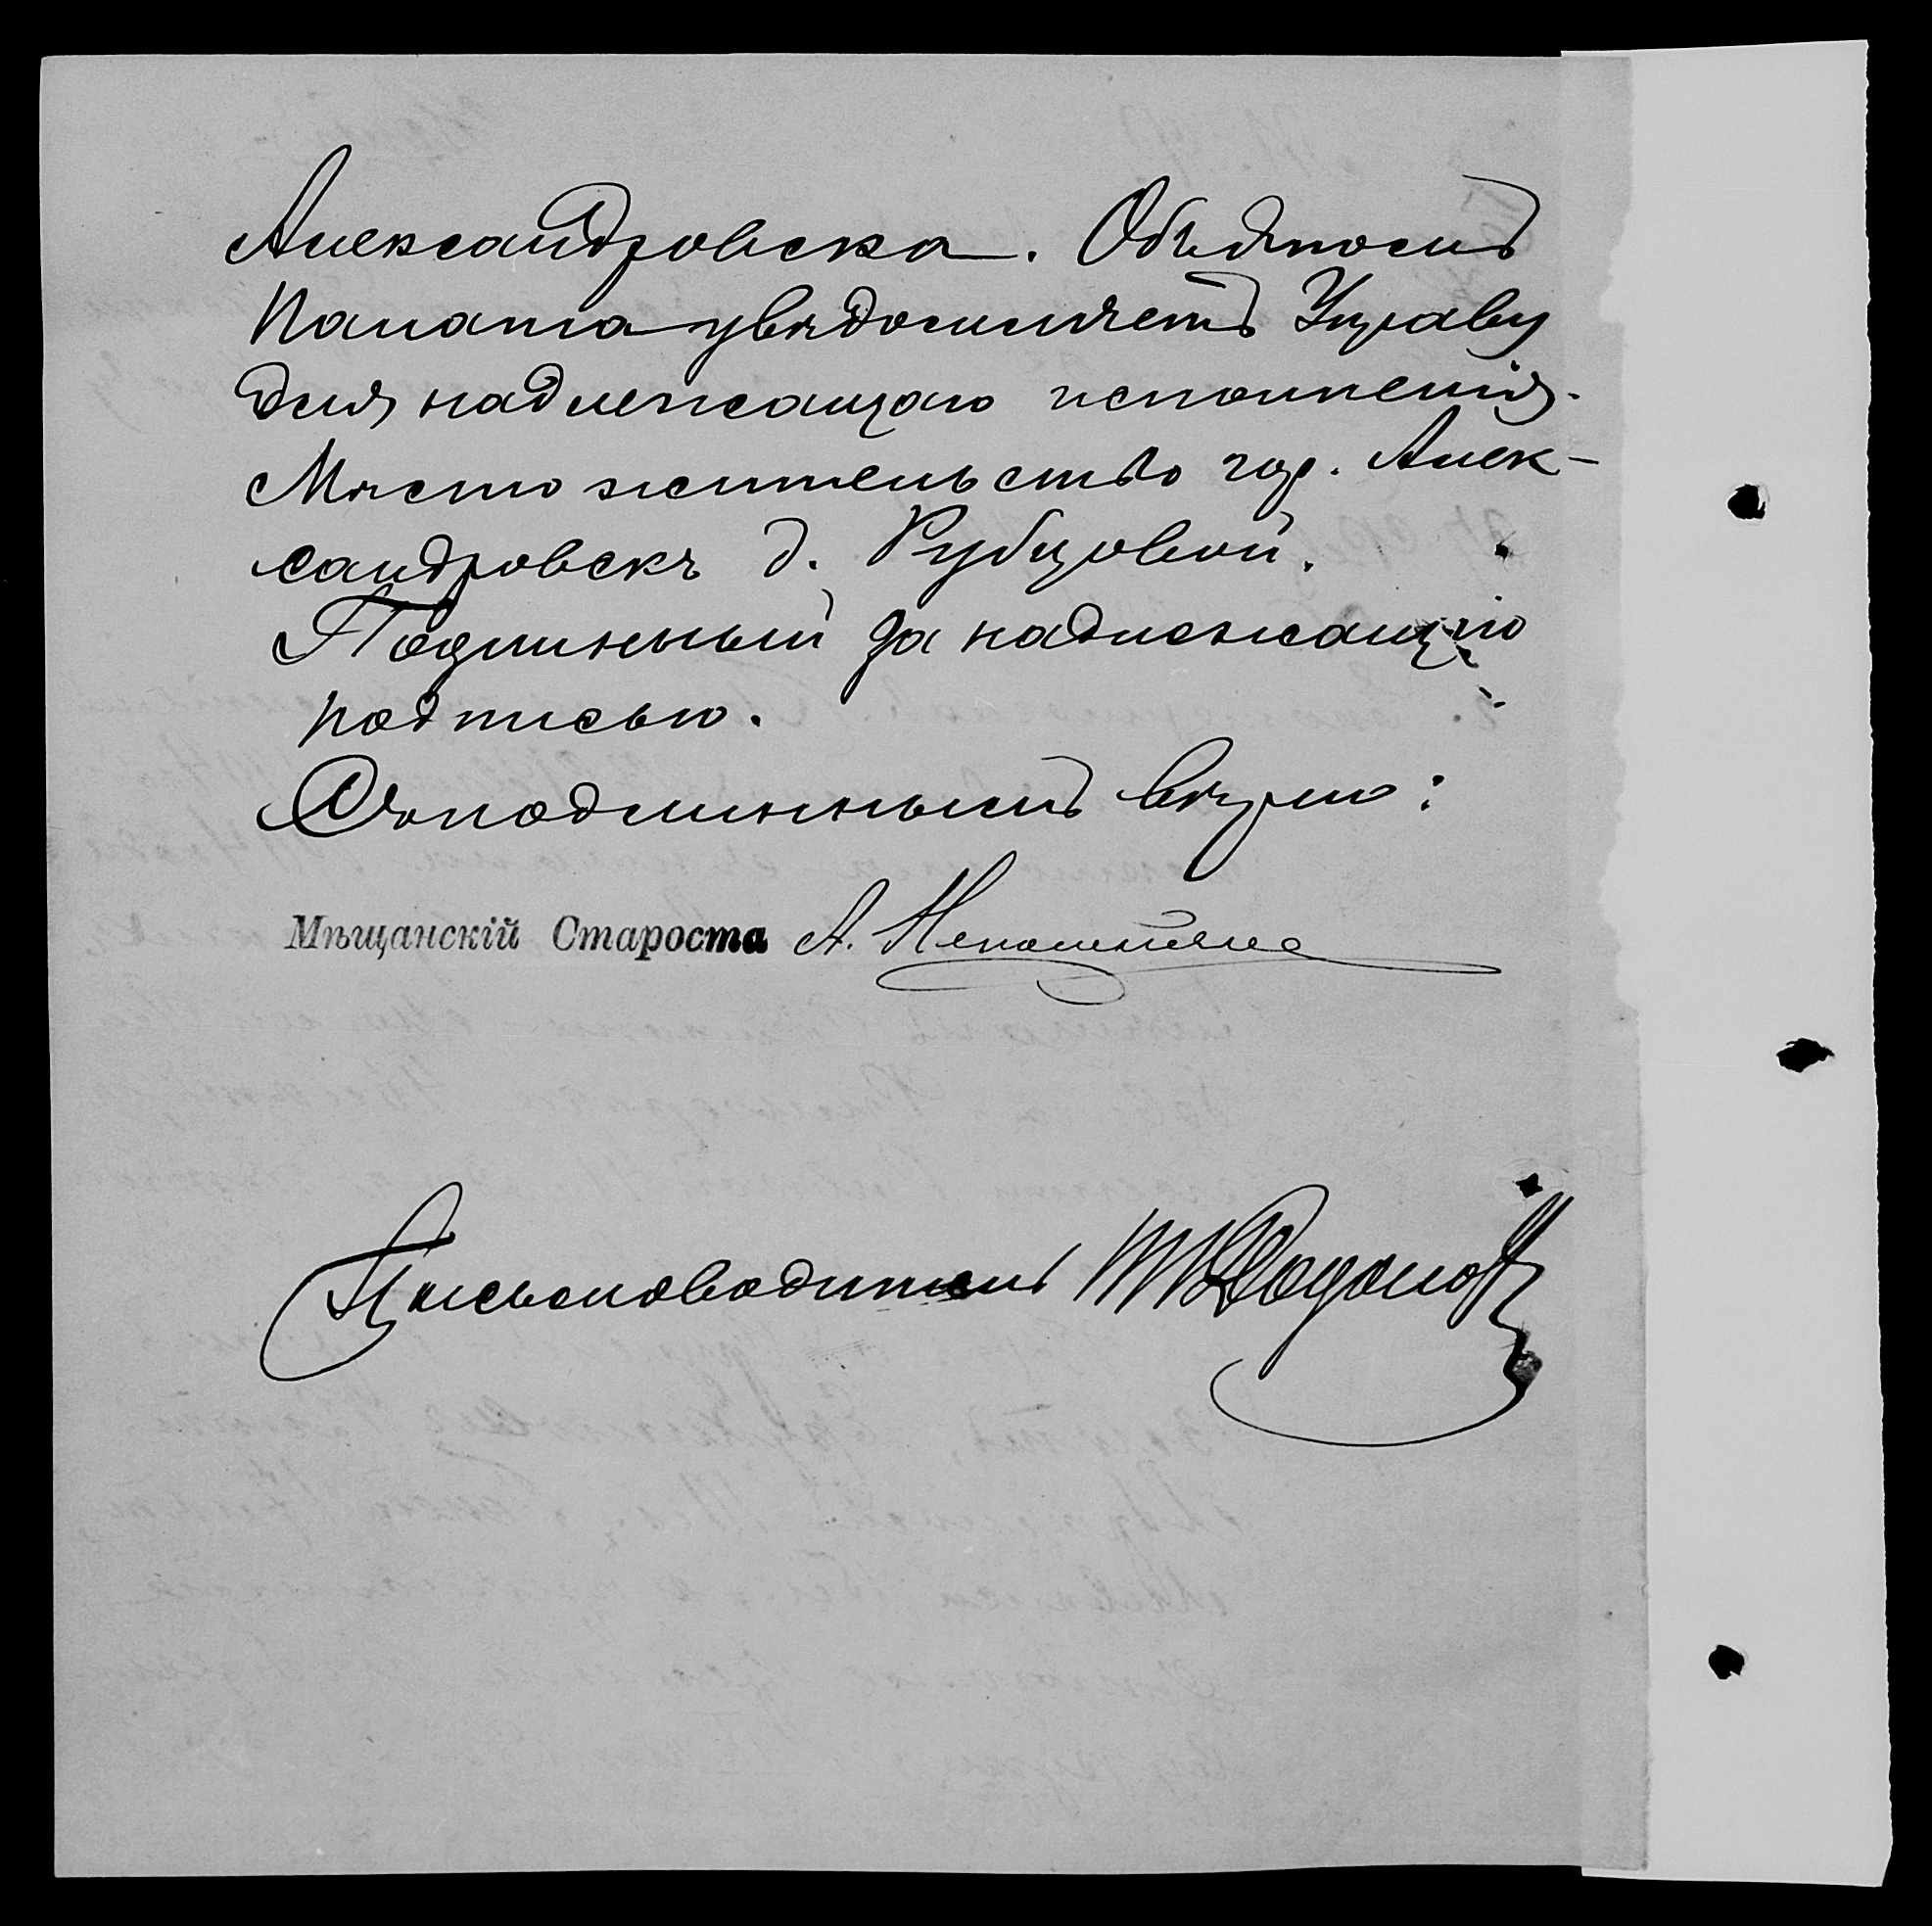 Александровска. Объ этомъ
Палата увѣдомляетъ Управу
для надлежащаго исполненія.
Мѣстожительство гор. Алек-
сандровскъ д. Рубцовой.
Подлинный за надлежащею
подписью.
Съ подлиннымъ вѣрно:
Мѣщанскій Староста А.
Письмоводитель